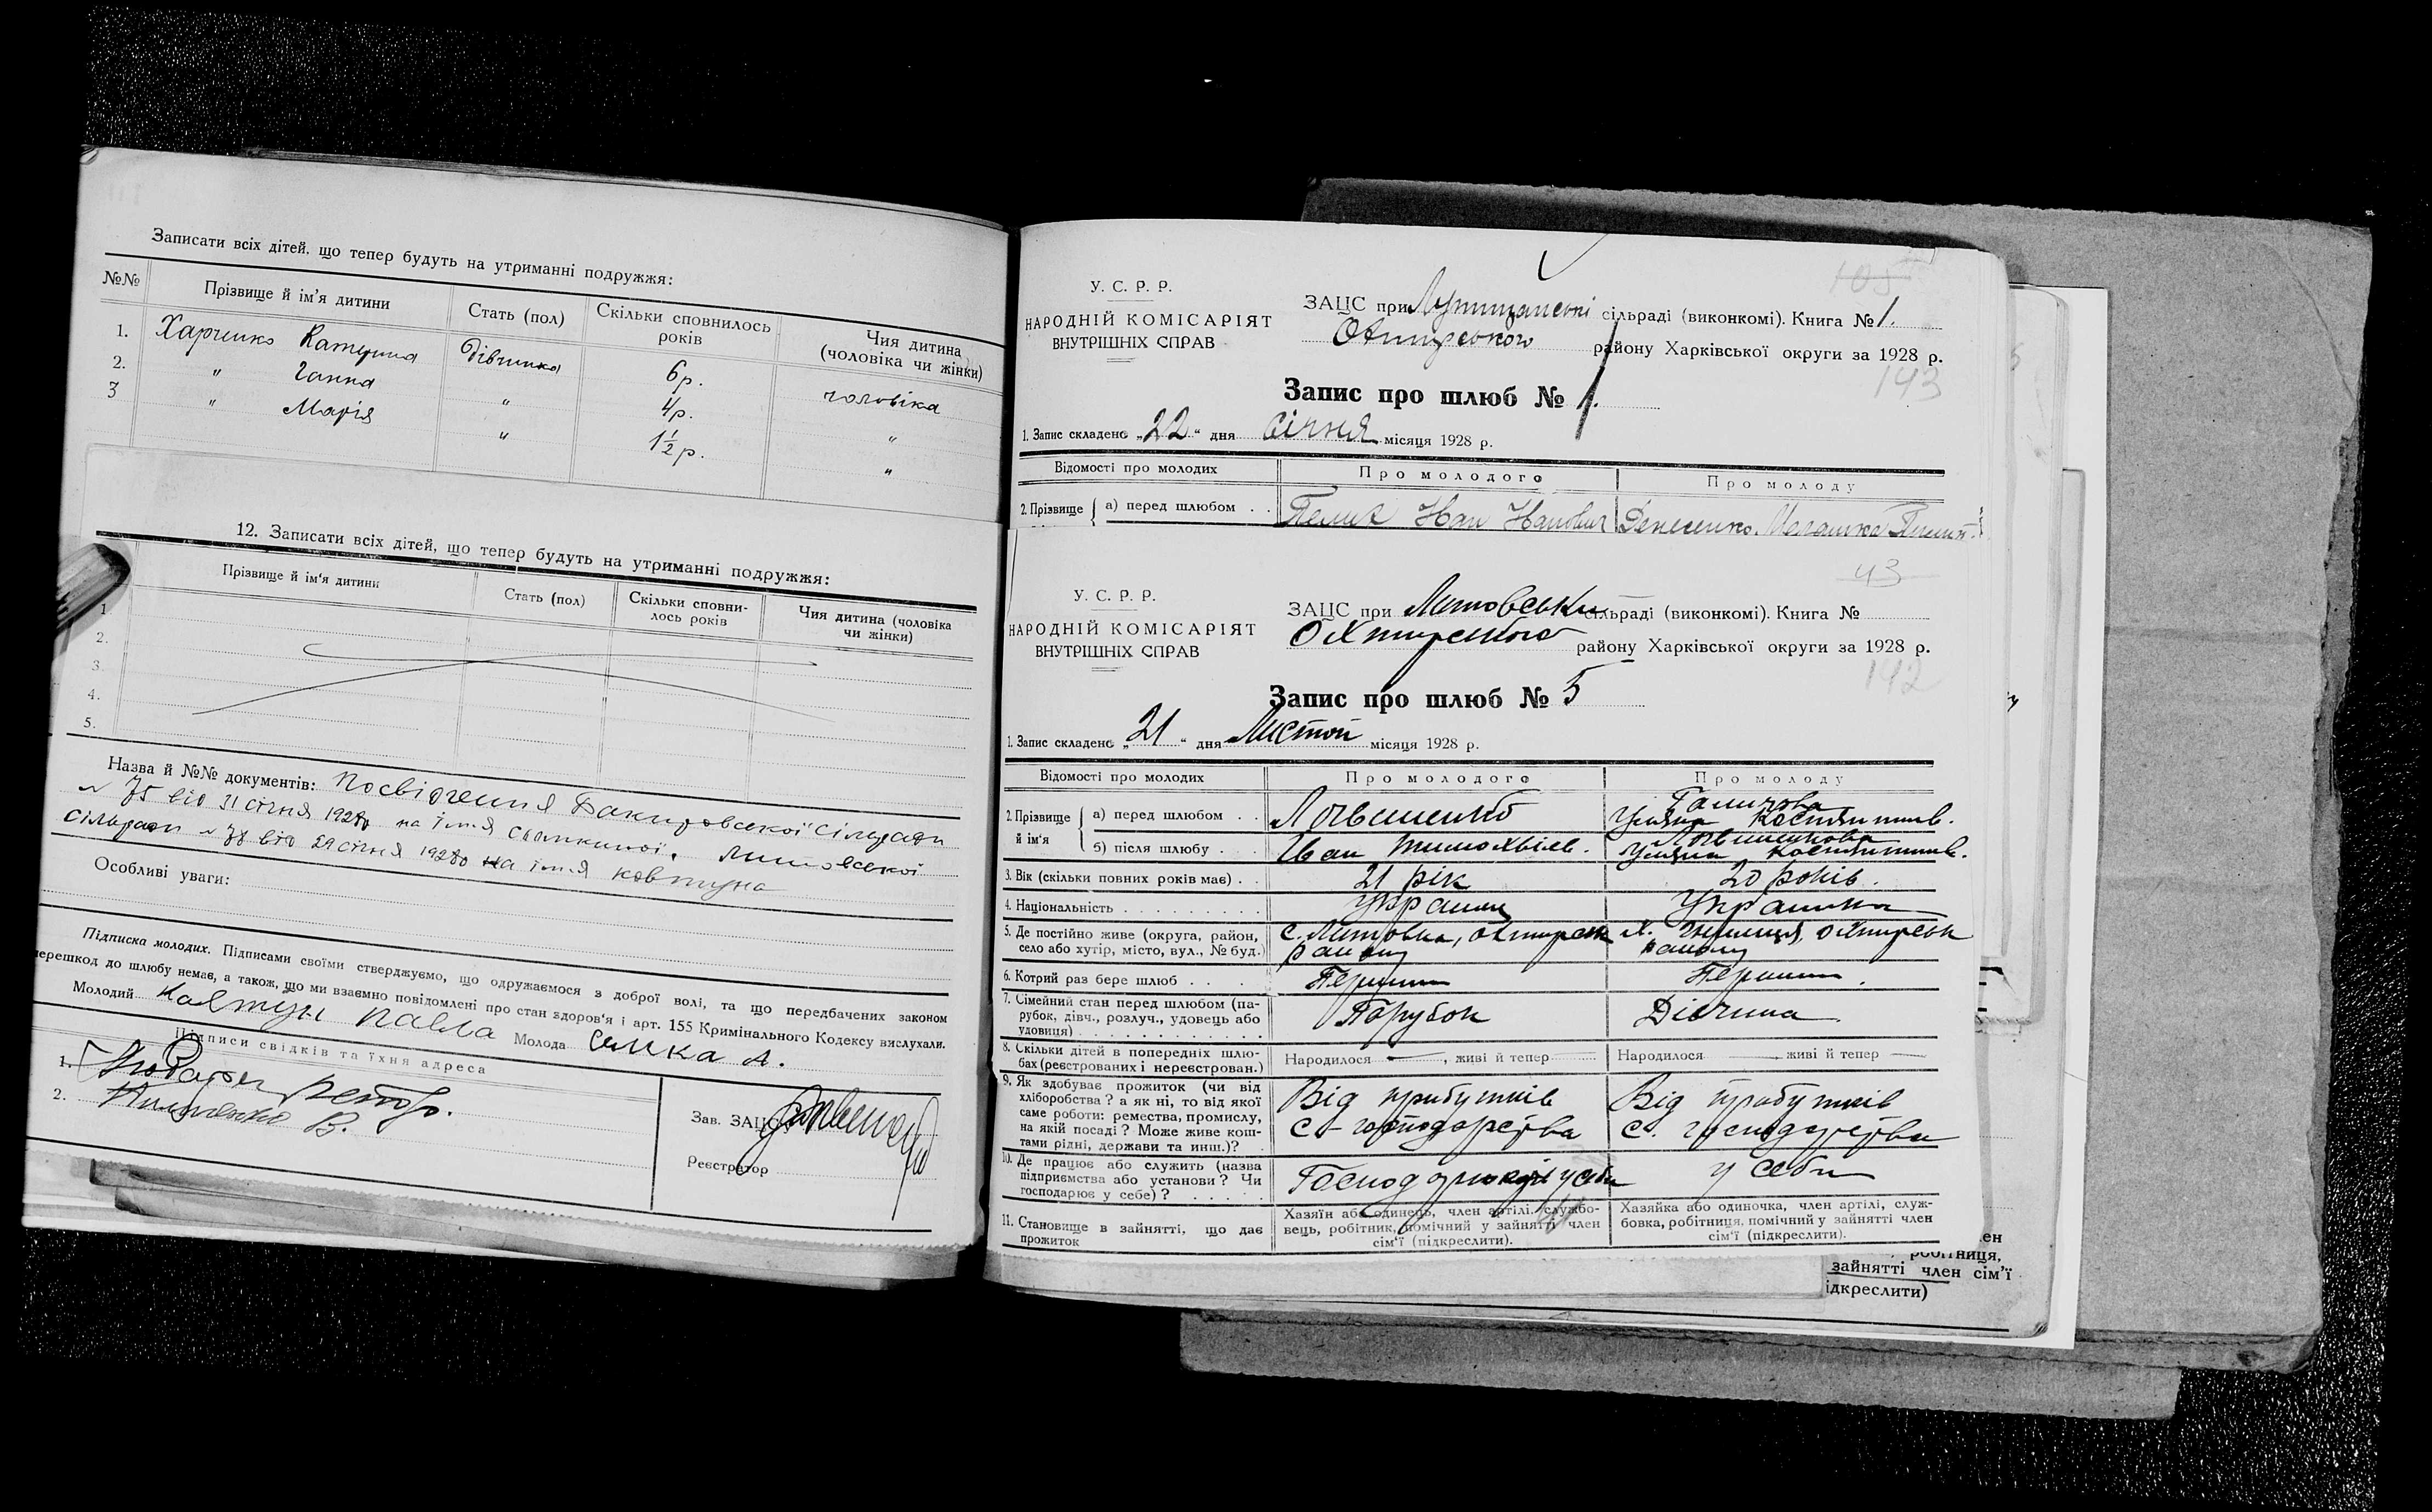 Записати всіх дітей, що тепер будуть на утриманні подружжя:
№№ Прізвище й ім'я дитини Стать (пол) Скільки сповнилось років Чия дитина (чоловіка чи жінки)
1. Харченко Катерина дівчинка 6 р. чоловіка
2. " Ганна " 4 р. "
3 " Марія " 1½ р. "
12. Записати всіх дітей, що тепер будуть на утриманні подружжя:
Прізвище й ім'я дитини Стать (пол) Скільки сповнилось років Чия дитина (чоловіка чи жінки)
1.
2.
3.
4.
5.
Назва й №№ документів: Посвідчення Бакировської сільради
№ 75 від 31 січня 1928 р на ім'я
сільради № 78 від 29 січня 1928 р на ім'я Ковтуна
Особливі уваги:
Підписка молодих. Підписами своїми стверджуємо, що одружаємося з доброї волі, та що передбачених законом
перешкод до шлюбу немає, а також, що ми взаємно повідомлені про стан здоров'я і арт. 155 Кримінального Кодексу вислухали.
Молодий Ковтун Павло Молода
Підписи свідків та їхня адреса
1.
2.
Зав. ЗАЦСУ
Реєстратор
105
У. С. Р. Р.
НАРОДНІЙ КОМІСАРІЯТ
ВНУТРІШНІХ СПРАВ
ЗАЦС при сільраді (виконкомі). Книга № 1.
Охтирського району Харківської округи за 1928 р.
143
Запис про шлюб № 1.
1. Запис складено „22" дня січня місяця 1928 р.
Відомості про молодих Про молодого Про молоду
2. Прізвище а) перед шлюбом . . Іван Іванович Денесенко
43
У. С. Р. Р.
НАРОДНІЙ КОМІСАРІЯТ
ВНУТРІШНІХ СПРАВ
ЗАЦС при Литовськи сільраді (виконкомі). Книга №
Охтирського району Харківської округи за 1928 р.
142
Запис про шлюб № 5
1. Запис складено „21" дня місяця 1928 р.
Відомості про молодих Про молодого Про молоду
2. Прізвище й ім'я
а) перед шлюбом . . Логвиненко Уляна
б) після шлюбу . . . Іван Уляна
3. Вік (скільки повних років має) . . 21 рік 20 років.
4. Національність . . . . . . . . . . Україн Українка
5. Де постійно живе (округа, район, село або хутір, місто, вул., № буд.) с. Литовка, Охтирськ району х. Охтирськ району
6. Котрий раз бере шлюб . . . . Перший Перший
7. Сімейний стан перед шлюбом (парубок, дівч., розлуч., удовець або удовиця) . . . . . . . . . . Парубок Дівчина
8. Скільки дітей в попередніх шлюбах (реєстрованих і нереєстрован.) Народилося —, живі й тепер Народилося живі й тепер —
9. Як здобуває прожиток (чи від хліборобства? а як ні, то від якої саме роботи: ремества, промислу, на якій посаді? Може живе коштами рідні, держави та инш.)? Від прибутків с-господарства Від прибутків с. господарства
10. Де працює або служить (назва підприємства або установи? Чи господарює у себе)? . . . . . у себи
11. Становище в зайнятті, що дає прожиток
Хазяїн або одинець, член артілі, службовець, робітник, помічний у зайнятті член сім'ї (підкреслити).
Хазяйка або одиночка, член артілі, службовка, робітниця, помічний у зайнятті член сім'ї (підкреслити).
робітниця,
зайнятті член сім'ї
ідкреслити)